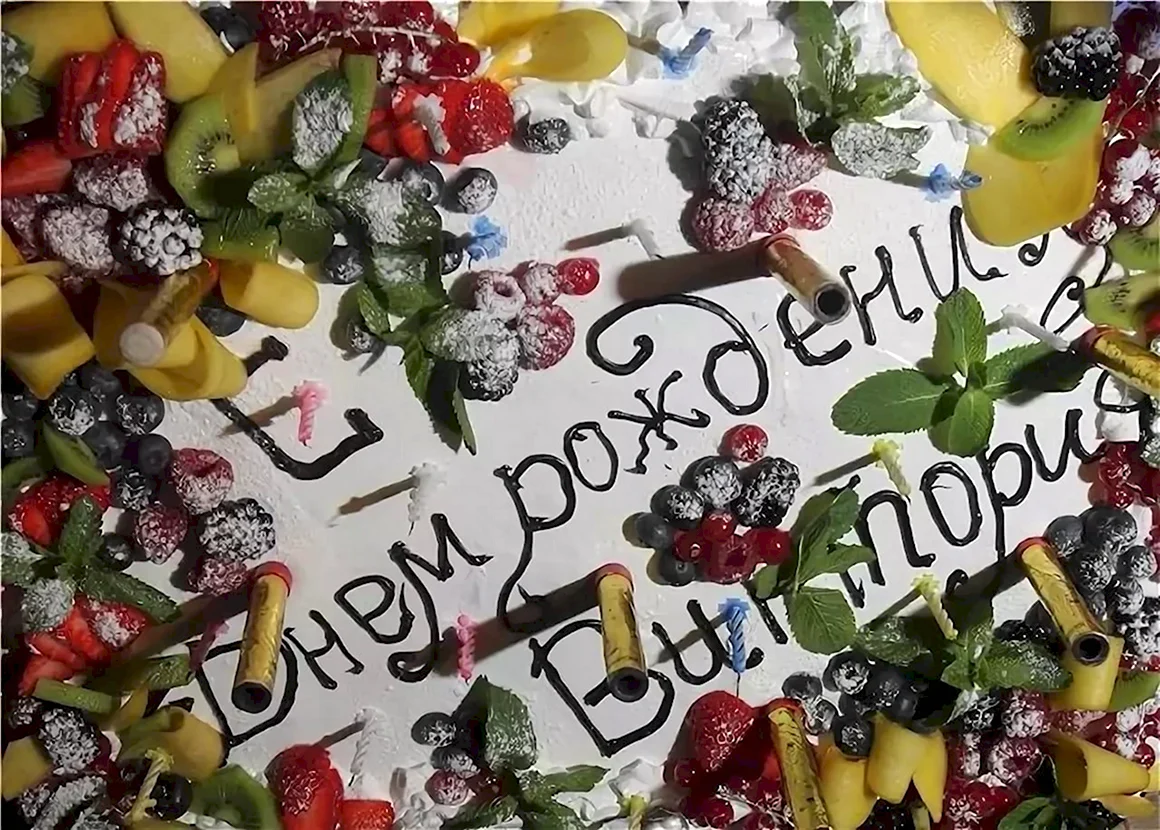 С
Днем рождения
Виктория